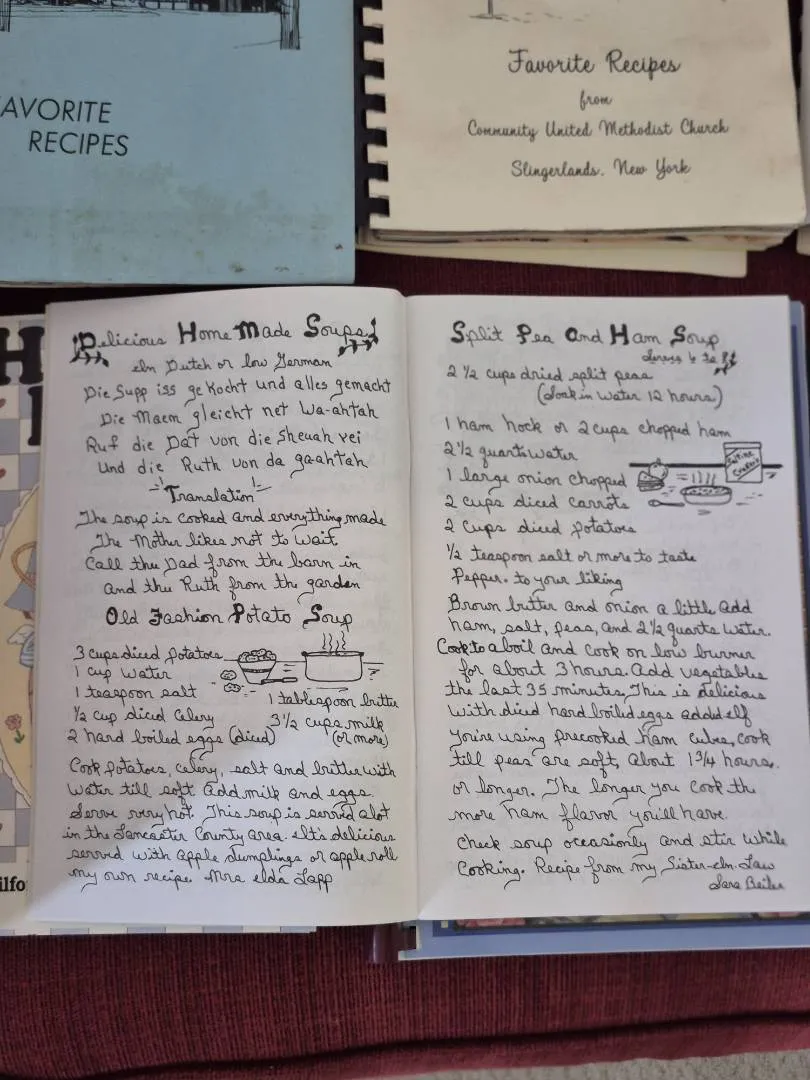 AVORITE
RECIPES
Favorite Recipes
from
Community United Methodist Church
Slingerlands, New York
Delicious Home Made Soups
In Dutch or low German
Die Supp iss ge Kocht und alles gemacht
Die Maem gleicht net Wa-ahtah
Ruf die Dat von die Sheuah rei
Und die Ruth von da gaahtah
Translation
The soup is cooked and everything made
The Mother likes not to wait
Call the Dad from the barn in
and the Ruth from the garden
Old Fashion Potato Soup
3 cups diced potatoes
1 cup water
1 teaspoon salt
1 tablespoon butter
½ cup diced celery
3½ cups milk
2 hard boiled eggs (diced)
(or more)
Cook potatoes, celery, salt and butter with
water till soft add milk and eggs.
Serve very hot. This soup is served alot
in the Lancaster County area. It's delicious
served with apple dumplings or apple roll
my own recipe. Mrs Elda Lapp
Split Pea And Ham Soup
Serves 6 to 8
2 ½ cups dried split peas
(Soak in water 12 hours)
1 ham hock or 2 cups chopped ham
2½ quarts water
1 large onion chopped
Saltine
Crackers
2 cups diced carrots
2 cups diced potatoes
½ teaspoon salt or more to taste
Pepper. to your liking
Brown butter and onion a little, add
ham, salt, peas, and 2½ quarts water.
Cook to a boil and cook on low burner
for about 3 hours. Add vegetables
the last 35 minutes, This is delicious
with diced hard boiled eggs added. If
you're using precooked ham cubes, cook
till peas are soft, about 1¾ hours.
or longer. The longer you cook the
more ham flavor you'll have.
check soup occasionly and stir while
cooking. Recipe from my Sister-In-Law
Sara Beiler
ilfo